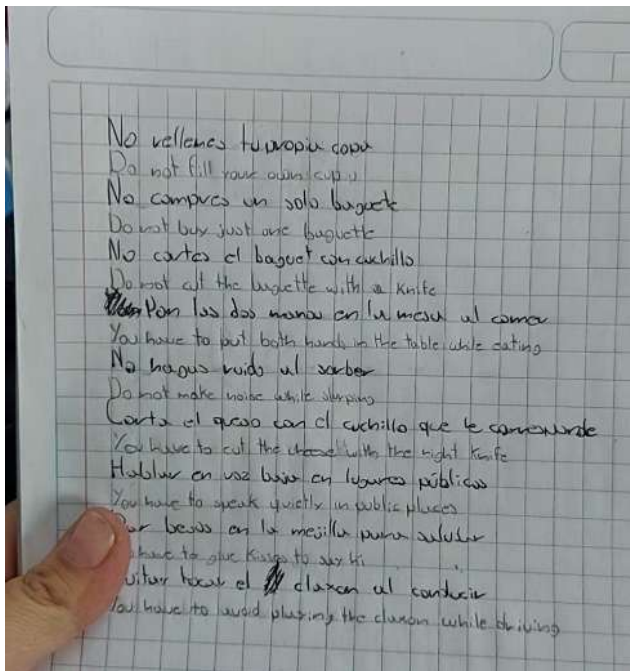 No rellenes tu propia copa
Do not fill your own cup
No compres un solo baguete
Do not buy just one baguette
No cortes el baguet con cuchillo
Do not cut the baguette with a knife
Pon las dos manos en la mesa al comer
You have to put both hands in the table while eating
No hagas ruido al sorber
Do not make noise while slurping
Corta el queso con el cuchillo que le corresponde
You have to cut the cheese with the right knife
Hablar en voz baja en lugares públicos
You have to speak quietly in public places
besos en la mejilla para saludar
have to give kisses to say hi
tocar el claxon al conducir
You have to avoid playing the claxon while driving